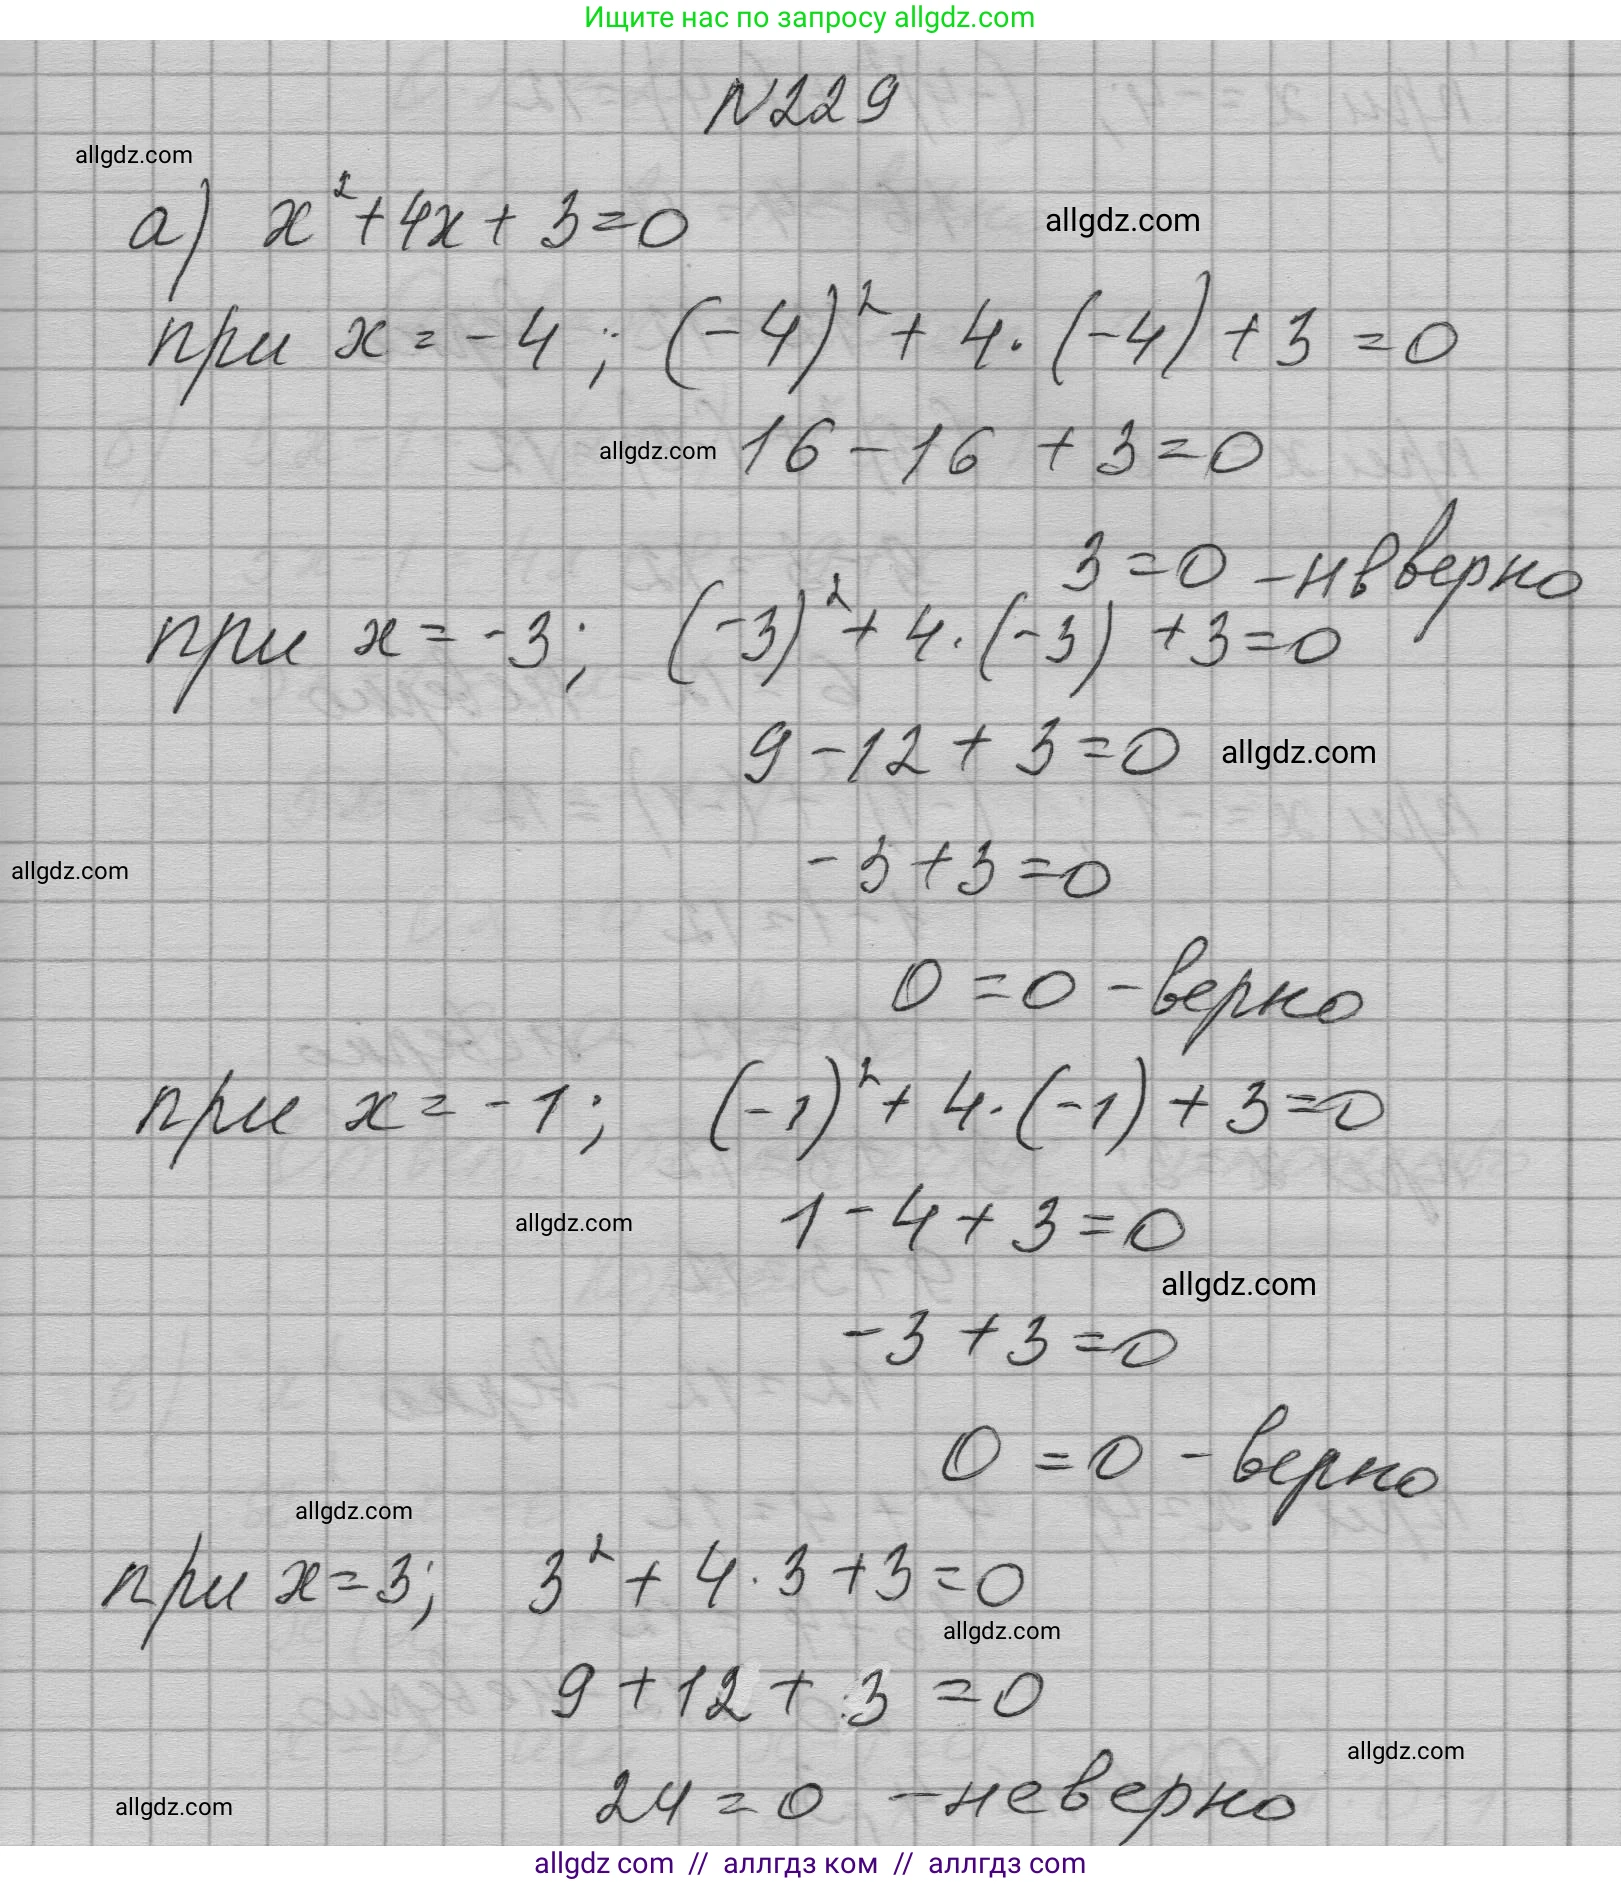 Ищите нас по запросу allgdz.com
N229
allgdz.com
а) x² + 4x + 3 = 0
allgdz.com
при x = -4; (-4)² + 4·(-4) + 3 = 0
allgdz.com
16 - 16 + 3 = 0
3 = 0 - неверно
при x = -3; (-3)² + 4·(-3) + 3 = 0
9 - 12 + 3 = 0
allgdz.com
allgdz.com
-3 + 3 = 0
0 = 0 - верно
при x = -1; (-1)² + 4·(-1) + 3 = 0
allgdz.com
1 - 4 + 3 = 0
allgdz.com
-3 + 3 = 0
0 = 0 - верно
allgdz.com
при x = 3; 3² + 4·3 + 3 = 0
allgdz.com
9 + 12 + 3 = 0
allgdz.com
24 = 0 - неверно
allgdz.com
allgdz com // аллгдз ком // аллгдз com